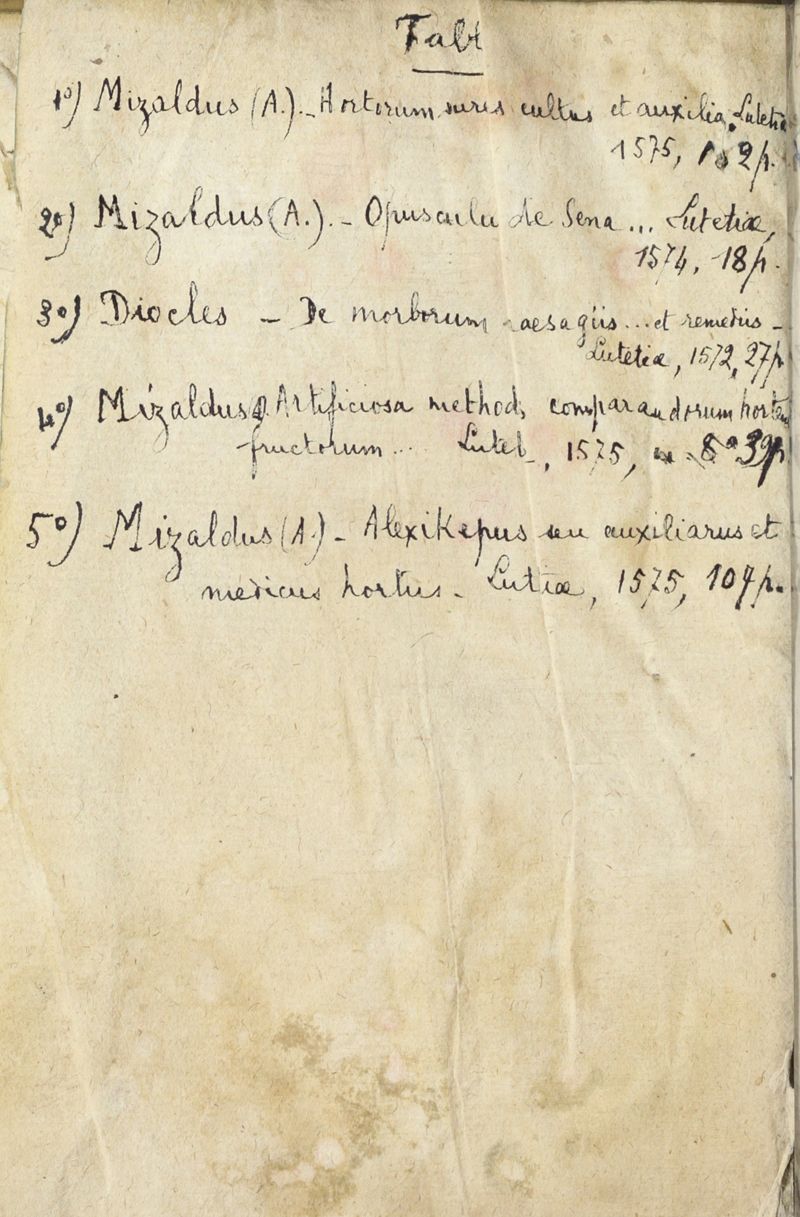 Tabl
1º) Mizaldus (A.) - Hortorum cultus et auxilia. Luteti
1575, 2p.
2º) Mizaldus (A.). - Opuscula de Sena ... Lutetiæ,
1574, 18 p.
3º) Diocles - De morborum aesagiis ... et remediis -
Lutetiæ, 1572, 27 p
4º) Mizaldus Artificiosa method, comparandorum hort
fructorum ... Lutet, 1575, 8º 39p
5º) Mizaldus (A.) - Alexikepus seu auxiliarus et
medicus hortus - Lutiæ, 1575, 107 p.